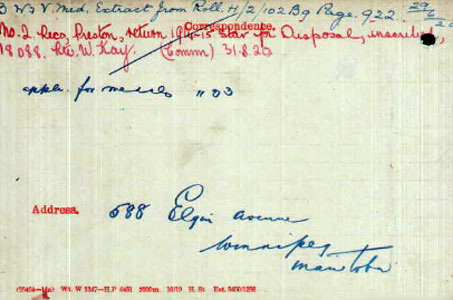 B W & V Med. Extract from Roll H/2/102 B9 Page. 922. 29/6/20
Correspondence.
No. 2 Recs, Preston, return 1914-15 Star for Disposal, inscribed,
18088. Pte. W. Kay. (Comm) 31.8.20
appln. for medals " 03
Address. 588 Elgin Avenue
Winnipeg
Manitoba
Wt. W 5347—H.P 2000m. 10/19 H. St